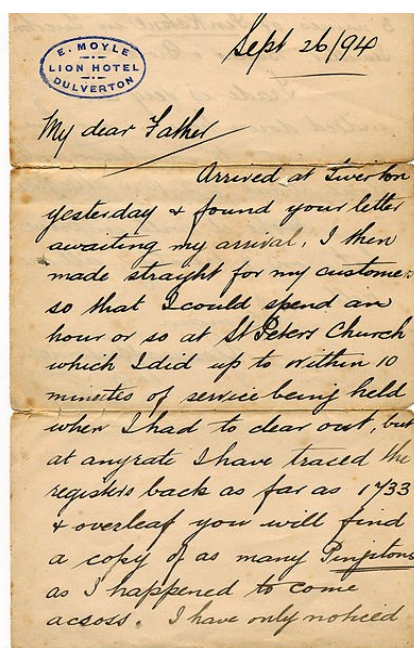 E. MOYLE
LION HOTEL
DULVERTON
Sept 26/94
My dear Father
Arrived at Tiverton
yesterday & found your letter
awaiting my arrival. I then
made straight for my customer
so that I could spend an
hour or so at St Peters Church
which I did up to within 10
minites of service being held
when I had to clear out, but
at anyrate I have traced the
registers back as far as 1733
& overleaf you will find
a copy of as many Pingstons
as I happened to come
acsoss. I have only noticed